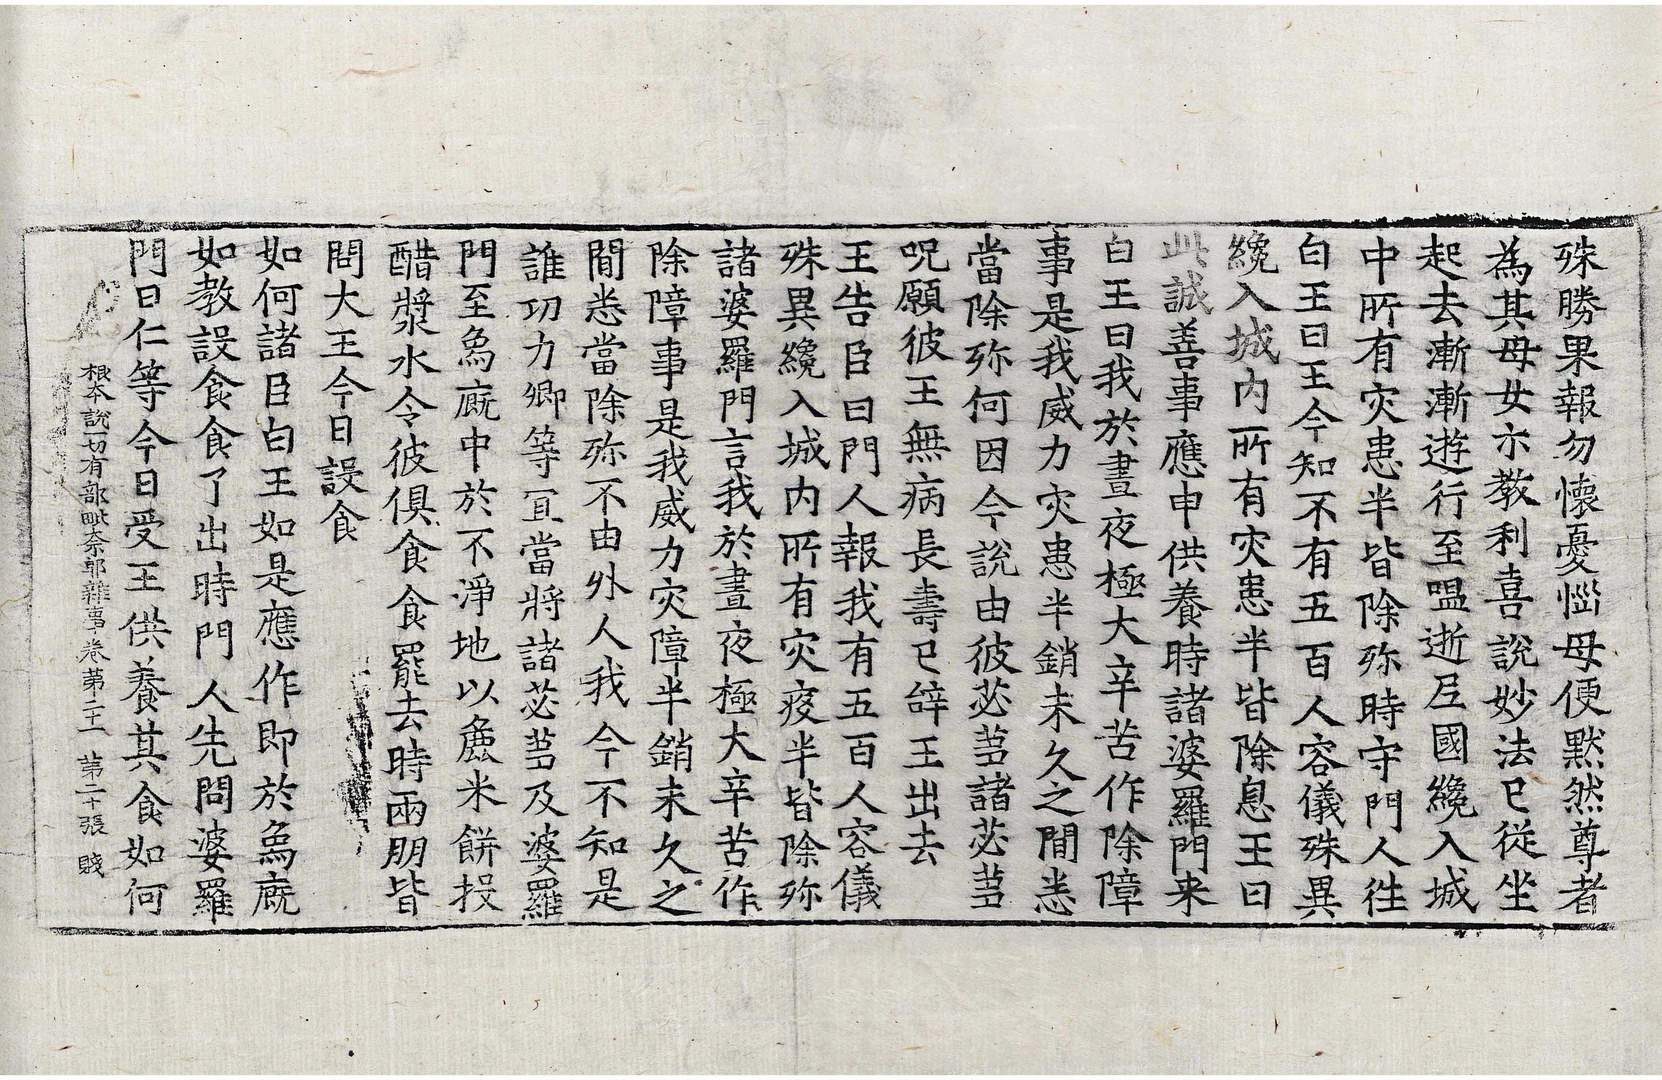 殊勝果報勿懷憂惱母便默然尊者
為其母女亦教利喜說妙法已從坐
起去漸漸遊行至嗢逝尼國纔入城
中所有灾患半皆除殄時守門人往
白王曰王今知不有五百人容儀殊異
纔入城内所有灾患半皆除息王曰
此誠善事應申供養時諸婆羅門来
白王曰我於晝夜極大辛苦作除障
事是我威力灾患半銷未久之間悉
當除殄何因今說由彼苾芻諸苾芻
呪願彼王無病長壽已辝王出去
王告臣曰門人報我有五百人容儀
殊異纔入城内所有灾疫半皆除殄
諸婆羅門言我於晝夜極大辛苦作
除障事是我威力灾障半銷未久之
間悉當除殄不由外人我今不知是
誰功力卿等冝當將諸苾芻及婆羅
門至為廐中於不淨地以麁米餅投
醋漿水令彼俱食食罷去時兩朋皆
問大王今日設食
如何諸臣白王如是應作即於為廐
如教設食食了出時門人先問婆羅
門曰仁等今日受王供養其食如何
根本說一切有部毗奈耶雜事卷苐二十一 苐二十張 賤